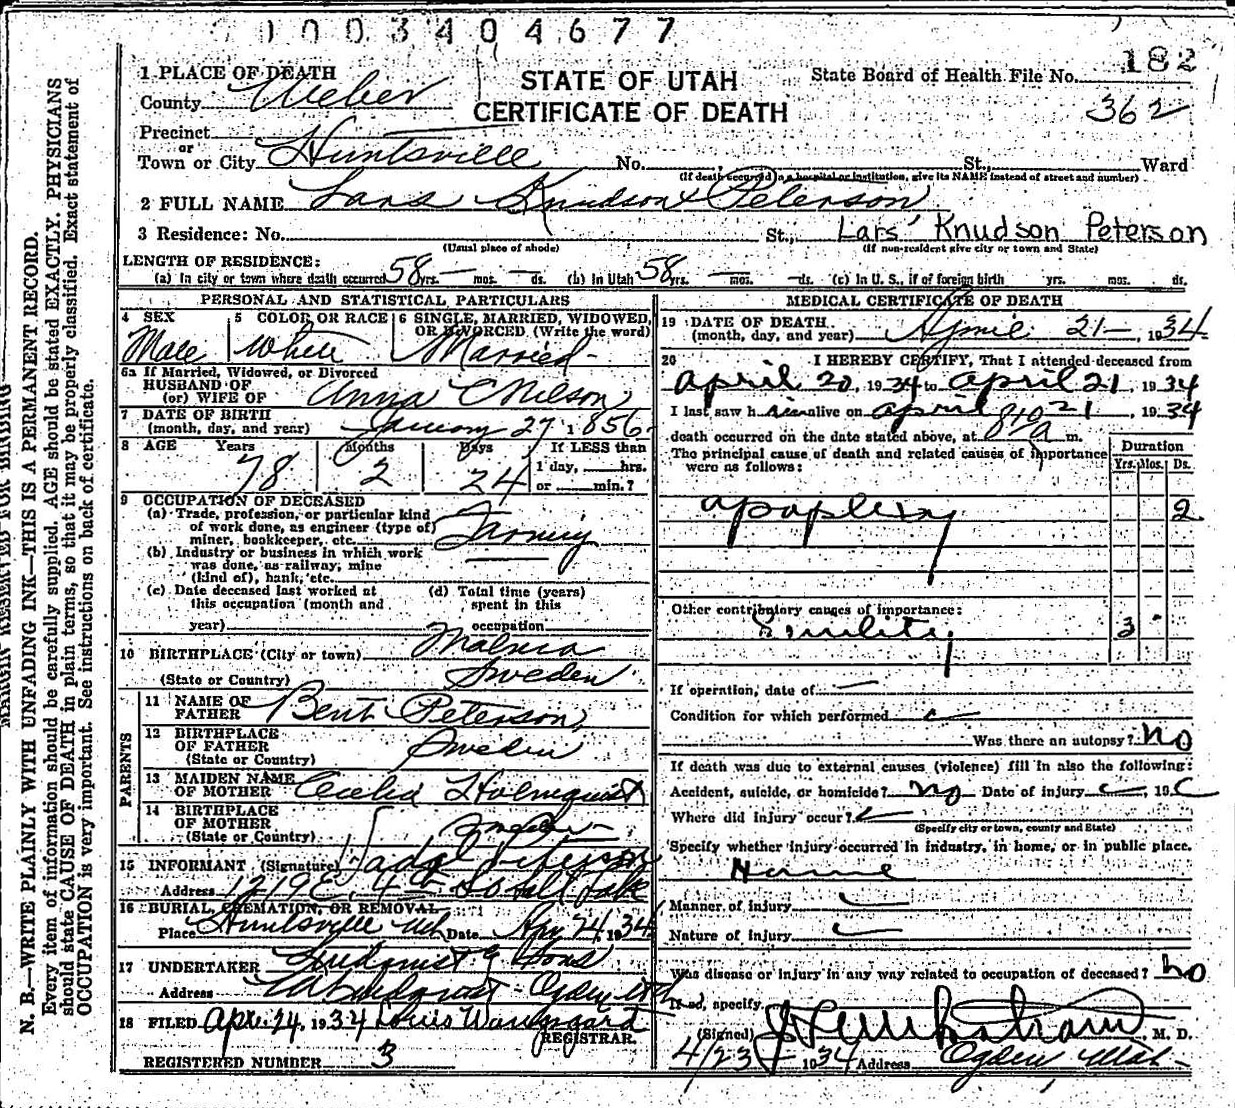 1003404677
182
1 PLACE OF DEATH
STATE OF UTAH
State Board of Health File No.
County Weber
CERTIFICATE OF DEATH
362
Precinct
or
Town or City Huntsville No. St., Ward
(If death occurred in a hospital or institution, give its NAME instead of street and number)
2 FULL NAME Lars Knudson Peterson
3 Residence: No. St., Lars Knudson Peterson
(Usual place of abode) (If non-resident give city or town and State)
LENGTH OF RESIDENCE:
(a) In city or town where death occurred 58 yrs. — mos. — ds. (b) In Utah 58 yrs. — mos. — ds. (c) In U. S., if of foreign birth yrs. mos. ds.
PERSONAL AND STATISTICAL PARTICULARS
4 SEX 5 COLOR OR RACE 6 SINGLE, MARRIED, WIDOWED, OR DIVORCED. (Write the word)
Male White Married
6a If Married, Widowed, or Divorced
HUSBAND OF
(or) WIFE OF Anna C Nilson
7 DATE OF BIRTH
(month, day, and year) January 27, 1856
8 AGE Years Months Days If LESS than
78 2 24 1 day, hrs.
or min.?
9 OCCUPATION OF DECEASED
(a) Trade, profession, or particular kind
of work done, as engineer (type of)
miner, bookkeeper, etc.
(b) Industry or business in which work
was done, as railway, mine
(kind of), bank, etc.
(c) Date deceased last worked at
this occupation (month and
year)
(d) Total time (years)
spent in this
occupation
10 BIRTHPLACE (City or town)
(State or Country) Sweden
PARENTS
11 NAME OF
FATHER Bent Peterson
12 BIRTHPLACE
OF FATHER Sweden
(State or Country)
13 MAIDEN NAME
OF MOTHER Cecelia Holmquist
14 BIRTHPLACE
OF MOTHER
(State or Country)
15 INFORMANT (Signature) Peterson
Address 1219 E. 4th So Salt Lake
16 BURIAL, CREMATION, OR REMOVAL
Place Huntsville Uth Date Apr 24, 1934
17 UNDERTAKER Lindquist & Sons
Address Lindquist Ogden Utah
18 FILED Apr. 24, 1934 Louis Wangsgaard
REGISTRAR.
REGISTERED NUMBER 3
MEDICAL CERTIFICATE OF DEATH
19 DATE OF DEATH
(month, day, and year) April 21— 1934
20 I HEREBY CERTIFY, That I attended deceased from
april 20, 1934 to april 21, 1934
I last saw him alive on april 21, 1934
death occurred on the date stated above, at m.
The principal cause of death and related causes of importance
were as follows:
Duration
Yrs. Mos. Ds.
apoplexy 2
Other contributory causes of importance:
Senility 3
If operation, date of —
Condition for which performed
Was there an autopsy? No
If death was due to external causes (violence) fill in also the following:
Accident, suicide, or homicide? no Date of injury , 19
Where did injury occur?
(Specify city or town, county and State)
Specify whether injury occurred in industry, in home, or in public place.
Home
Manner of injury
Nature of injury
Was disease or injury in any way related to occupation of deceased? no
If so, specify
(Signed) , M. D.
4/23 1934 Address Ogden, Utah
MARGIN RESERVED FOR BINDING
N. B.—WRITE PLAINLY WITH UNFADING INK—THIS IS A PERMANENT RECORD.
Every item of information should be carefully supplied. AGE should be stated EXACTLY. PHYSICIANS
should state CAUSE OF DEATH in plain terms, so that it may be properly classified. Exact statement of
OCCUPATION is very important. See instructions on back of certificate.